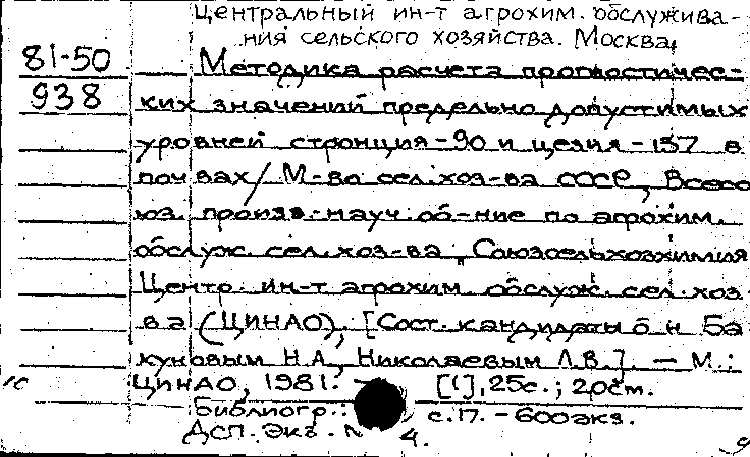 Центральный ин-т агрохим. обслужива-
ния сельского хозяйства. Москва.
81-50 Методика расчета прогностичес-
938 ких значений предельно допустимых
уровней стронция-90 и цезия-137 в
почвах/ М-во сел.хоз-ва СССР, Всесо
юз. произв.-науч. об-ние по агрохим.
обслуж. сел. хоз-ва "Союзсельхозхимия
Центр. ин-т агрохим. обслуж. сел. хоз
ва (ЦИНАО), [Сост. кандидаты б н Ба
куновым Н.А, Николаевым Л.В.]. — М.:
ЦИНАО, 1981. — [1], 25с.; 20см.
Библиогр.: с.17. - 600экз.
ДСП. Экз. № 4.